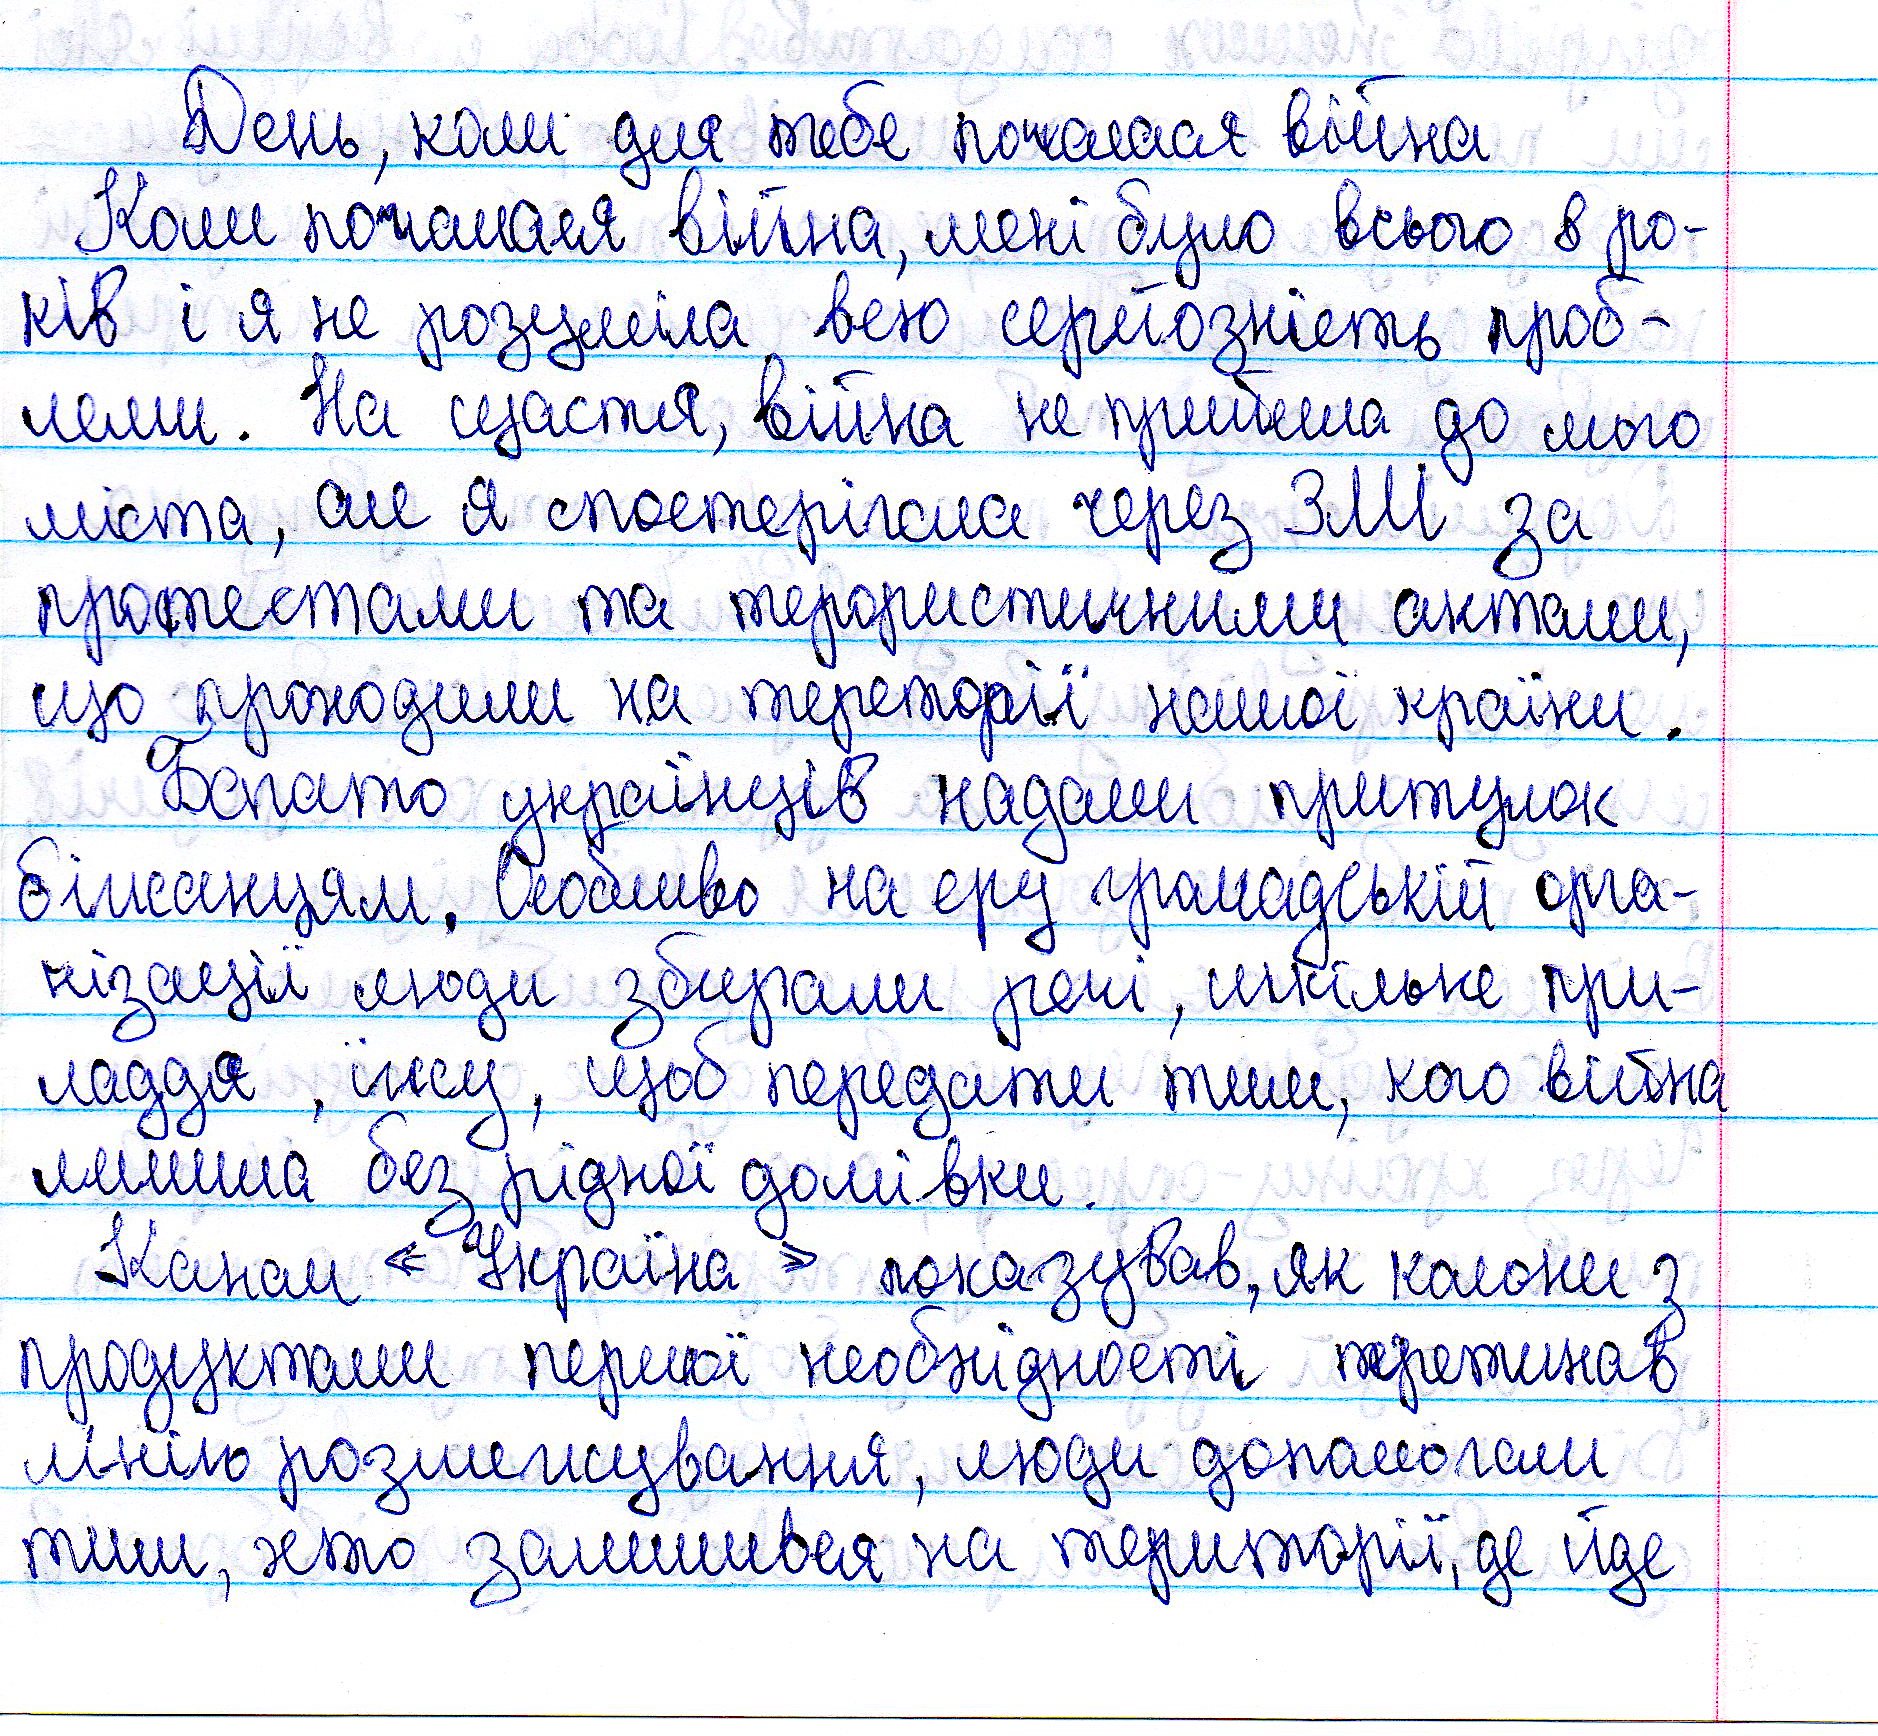 День, коли для тебе почалася війна
Коли почалася війна, мені було всього 8 ро-
ків і я не розуміла всю серйозність проб-
леми. На щастя, війна не прийшла до мого
міста, але я спостерігала через ЗМІ за
протестами та терористичними актами,
що проходили на тереторії нашої країни.
Багато українців надали притулок
біженцям. Особливо на еру громадській орга-
нізації люди збирали речі, шкільне при-
ладдя, їжу, щоб передати тим, кого війна
лишила без рідної домівки.
Канал «Україна» показував, як колони з
продуктами першої необхідності перетинав
лінію розмежування, люди допомогали
тим, хто залишився на території, де йде